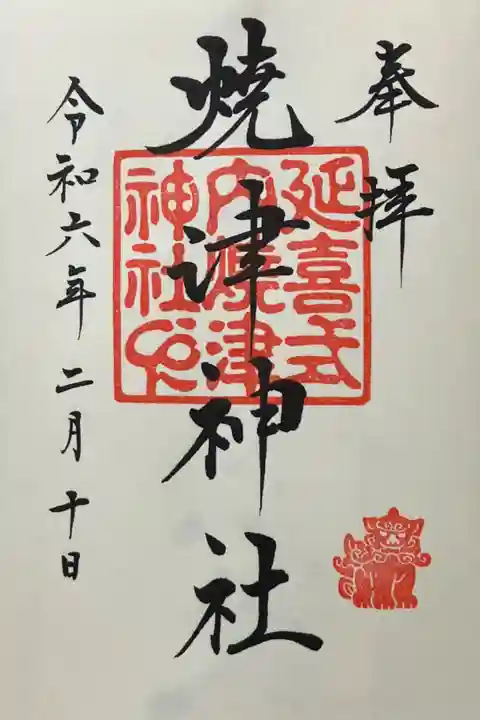 奉拝
焼津神社
延喜式
内焼津
神社之印
令和六年二月十日